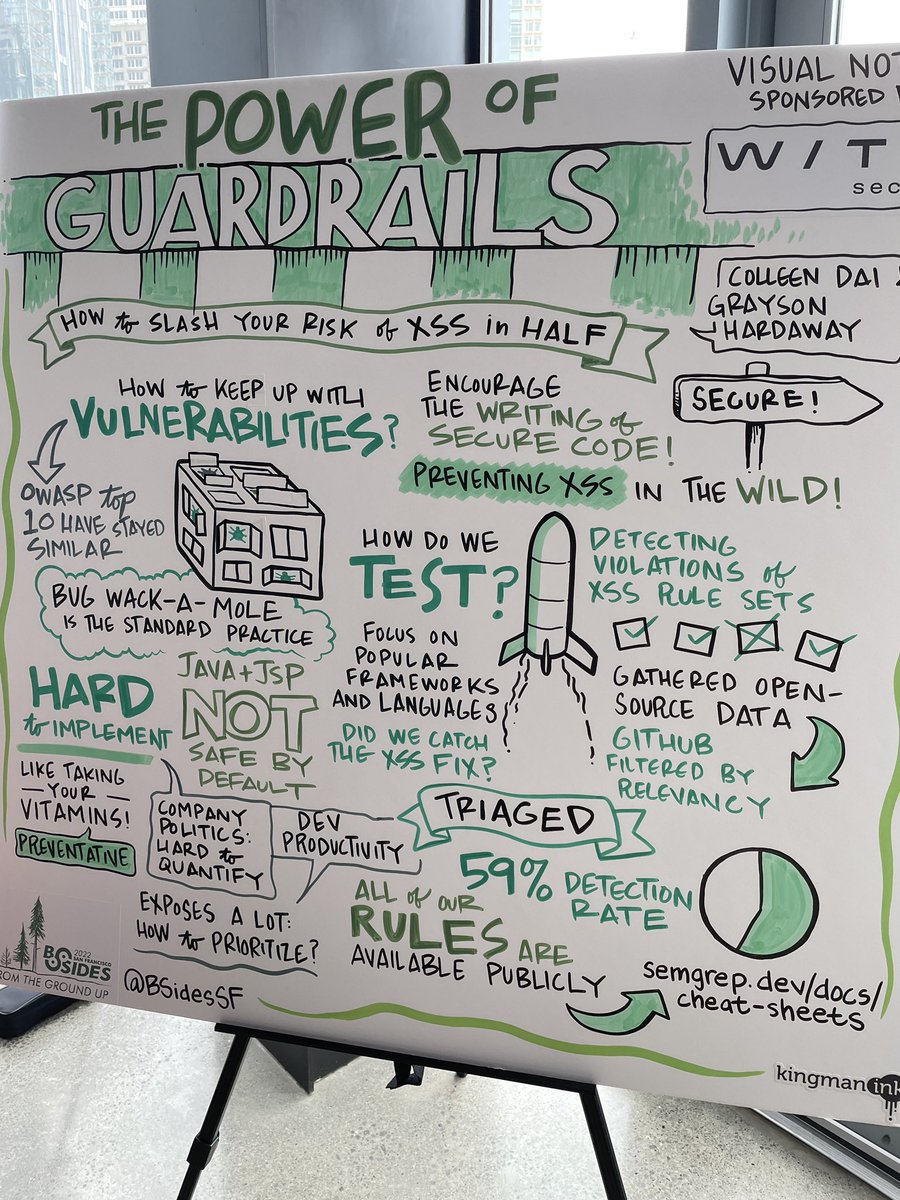 THE POWER OF
GUARDRAILS
VISUAL
SPONSORED
COLLEEN DAI
GRAYSON
HARDAWAY
HOW to SLASH YOUR RISK of XSS in HALF
HOW to KEEP UP WITH
VULNERABILITIES?
OWASP top
10 HAVE STAYED
SIMILAR
BUG WACK-A-MOLE
IS THE STANDARD PRACTICE
ENCOURAGE
THE WRITING of
SECURE CODE!
SECURE!
PREVENTING XSS IN THE WILD!
HOW DO WE
TEST?
FOCUS ON
POPULAR
FRAMEWORKS
AND LANGUAGES
DID WE CATCH
THE XSS FIX?
DETECTING
VIOLATIONS of
XSS RULE SETS
GATHERED OPEN-
SOURCE DATA
GITHUB
FILTERED BY
RELEVANCY
HARD
to IMPLEMENT
JAVA+JSP
NOT
SAFE BY
DEFAULT
LIKE TAKING
YOUR
VITAMINS!
PREVENTATIVE
COMPANY
POLITICS:
HARD to
QUANTIFY
DEV
PRODUCTIVITY
EXPOSES A LOT:
HOW to PRIORITIZE?
TRIAGED
59% DETECTION
RATE
ALL of OUR
RULES ARE
AVAILABLE PUBLICLY
semgrep.dev/docs/
cheat-sheets
2022
SAN FRANCISCO
BSIDES
FROM THE GROUND UP
@BSidesSF
kingman ink